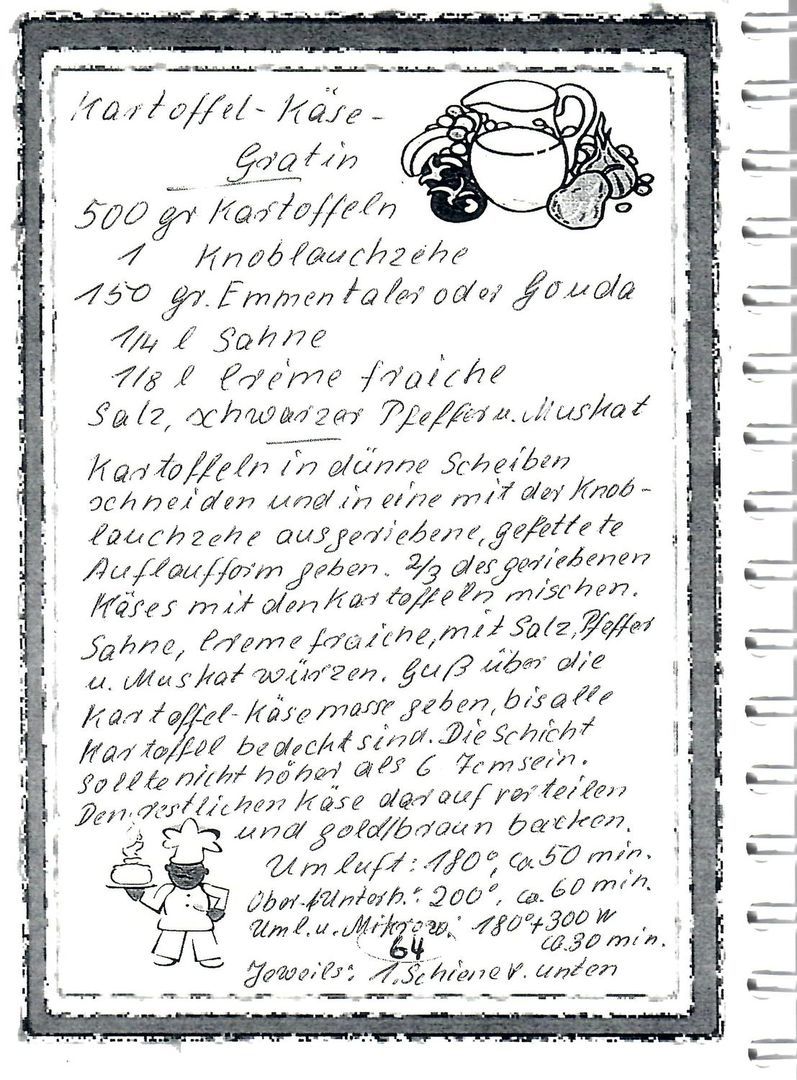 Kartoffel-Käse-
Gratin
500 gr Kartoffeln
1 Knoblauchzehe
150 gr. Emmentaler oder Gouda
1/4 l Sahne
1/8 l Crème fraiche
Salz, schwarzer Pfeffer u. Muskat
Kartoffeln in dünne Scheiben
schneiden und in eine mit der Knob-
lauchzehe ausgeriebene, gefettete
Auflaufform geben. 2/3 des geriebenen
Käses mit den Kartoffeln mischen.
Sahne, Creme fraiche, mit Salz, Pfeffer
u. Muskat würzen. Guß über die
Kartoffel-Käsemasse geben, bis alle
Kartoffel bedeckt sind. Die Schicht
sollte nicht höher als 6 7cm sein.
Den restlichen Käse darauf verteilen
und goldbraun backen.
Umluft: 180°, ca. 50 min.
Ober-/Unterh.: 200°, ca. 60 min.
Uml. u. Mikrow.: 180° + 300 W
ca. 30 min.
64
Jeweils: 1. Schiene v. unten